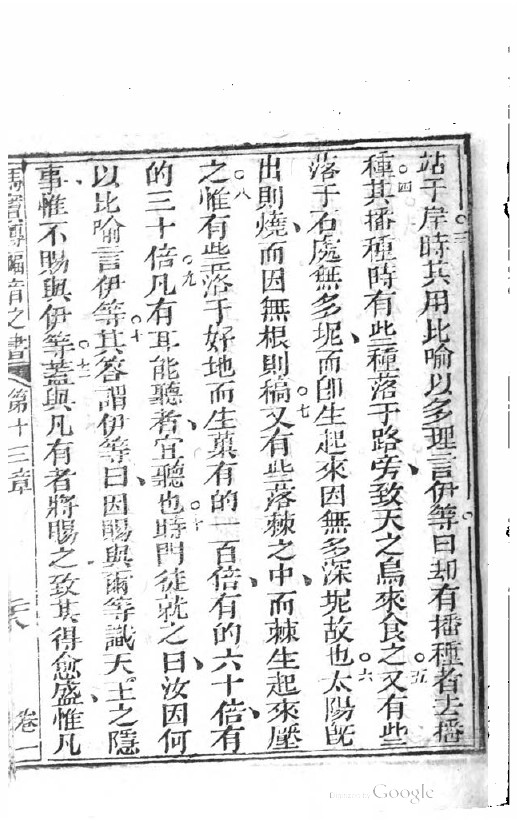 站于岸時其用比喻以多理言伊等曰却有播種者去播
種其播種時有些種落于路旁致天之鳥來食之又有些
落于石處無多坭而卽生起來因無多深坭故也太陽旣
出則燒而因無根則稿又有些落棘之中而棘生起來壓
之惟有些落于好地而生菓有的一百倍有的六十倍有
的三十倍凡有耳能聽者宜聽也時門徒就之曰汝因何
以比喻言伊等其答謂伊等曰因賜與爾等識天王之隱
事惟不賜與伊等蓋與凡有者將賜之致其得愈盛惟凡
馬竇傳福音之書 第十三章 卷一
Digitized by Google